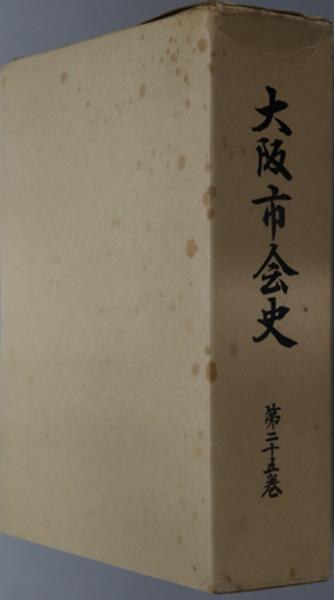 大阪市会史
第二十五巻